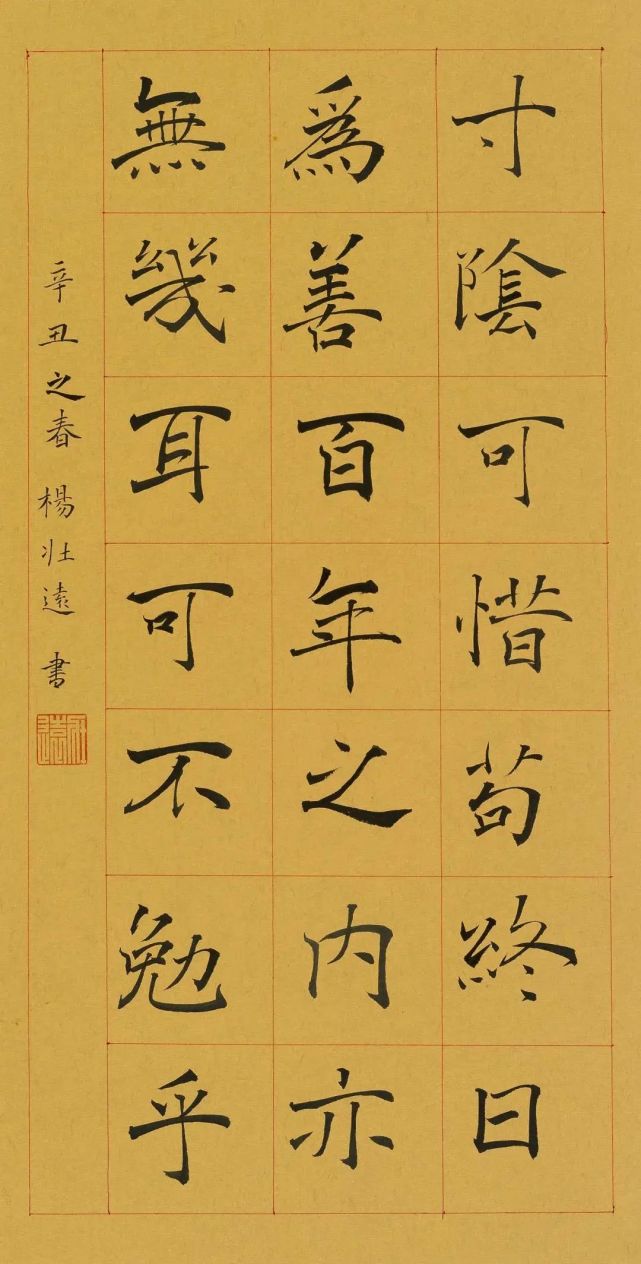 寸陰可惜苟終日
爲善百年之内亦
無幾耳可不勉乎
辛丑之春 楊壯遠 書